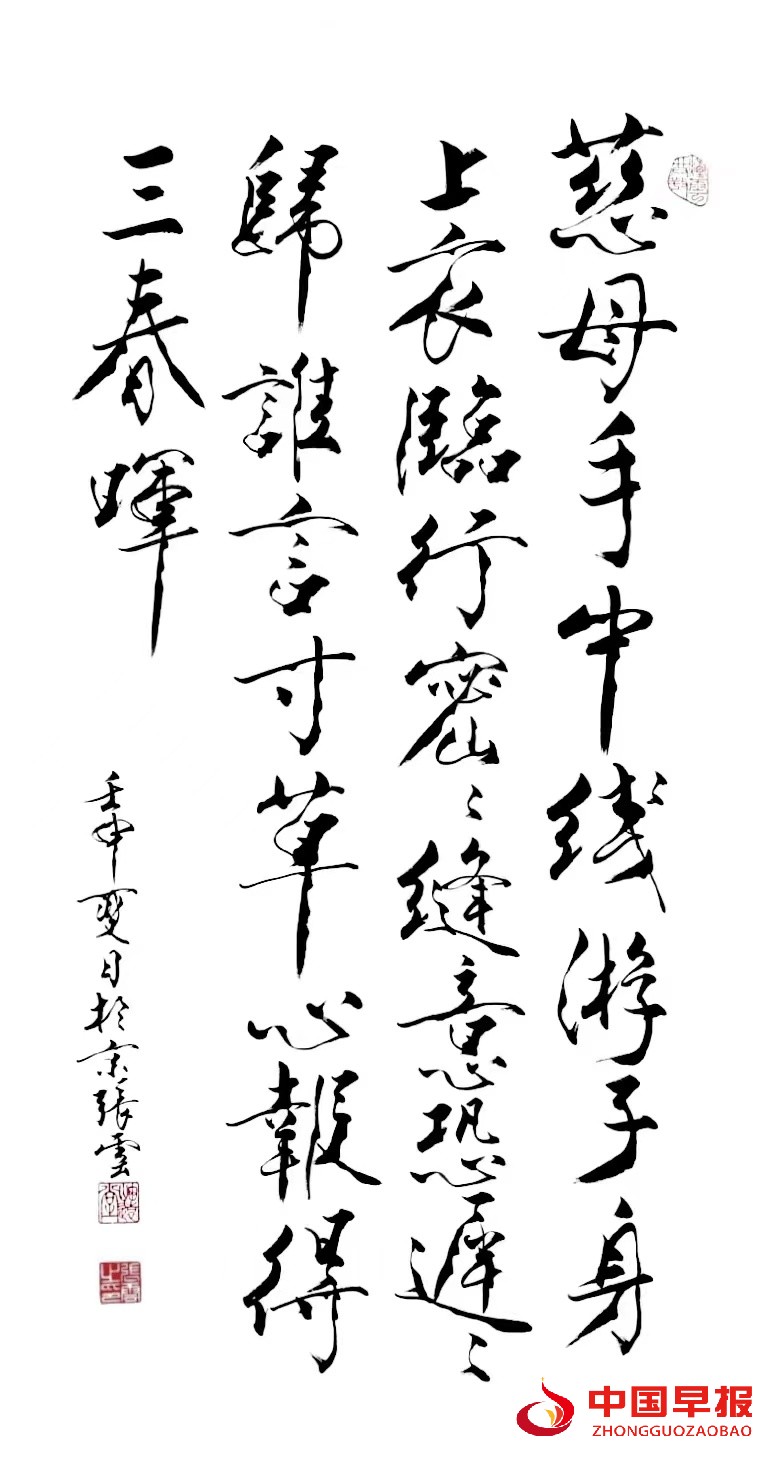 慈母手中线游子身
上衣臨行密〻縫意恐遲〻
歸誰言寸草心報得
三春暉
壬申夏日於京張雲
中国早报
ZHONGGUOZAOBAO